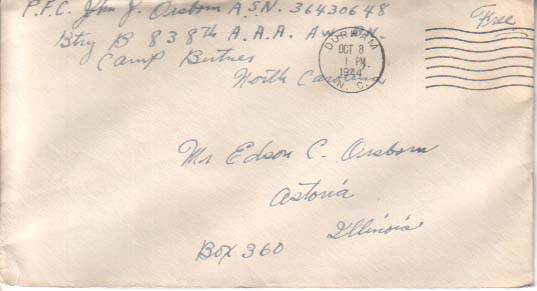 P.F.C. John J. Orsborn A.S.N. 36430648
Free
Btry B 838th A.A.A. Aw. Bn.
Camp Butner
North Carolina
DURHAM
OCT 8
1 PM
1944
N.C.
Mr Edson C. Orsborn
Astoria
Illinois
Box 360